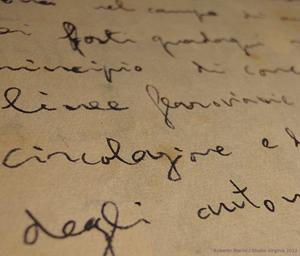 nel campo di
forti guadagni
principio di
linee ferroviarie
circolazione e
degli
Roberto Marini / Studio Virginia 2012